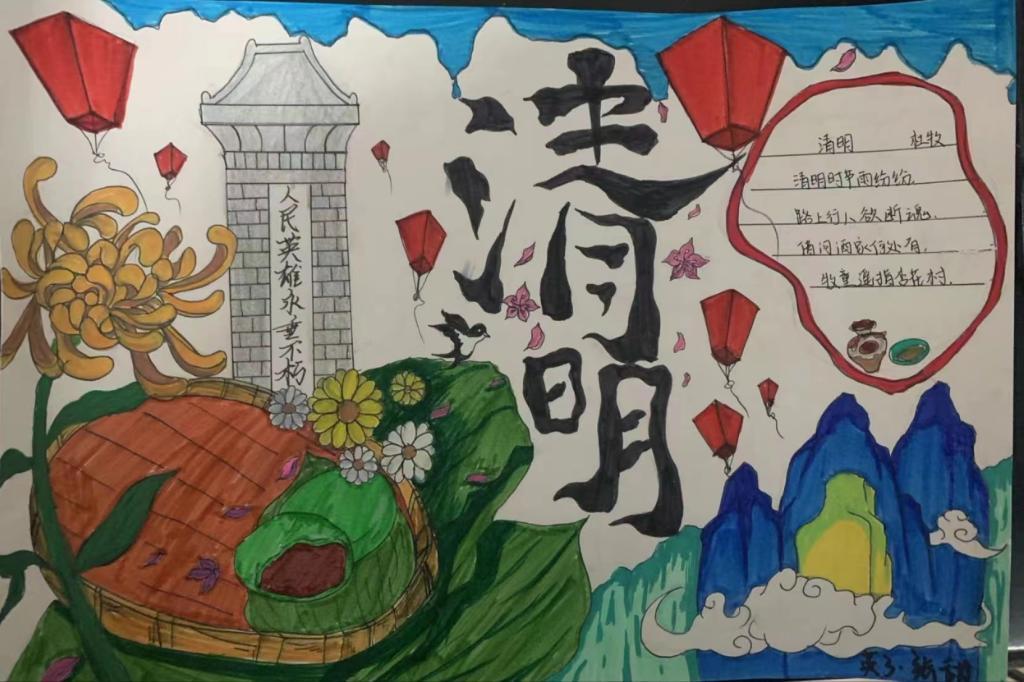 清明
人民英雄永垂不朽
清明 杜牧
清明时节雨纷纷.
路上行人欲断魂.
借问酒家何处有.
牧童遥指杏花村.
张甜